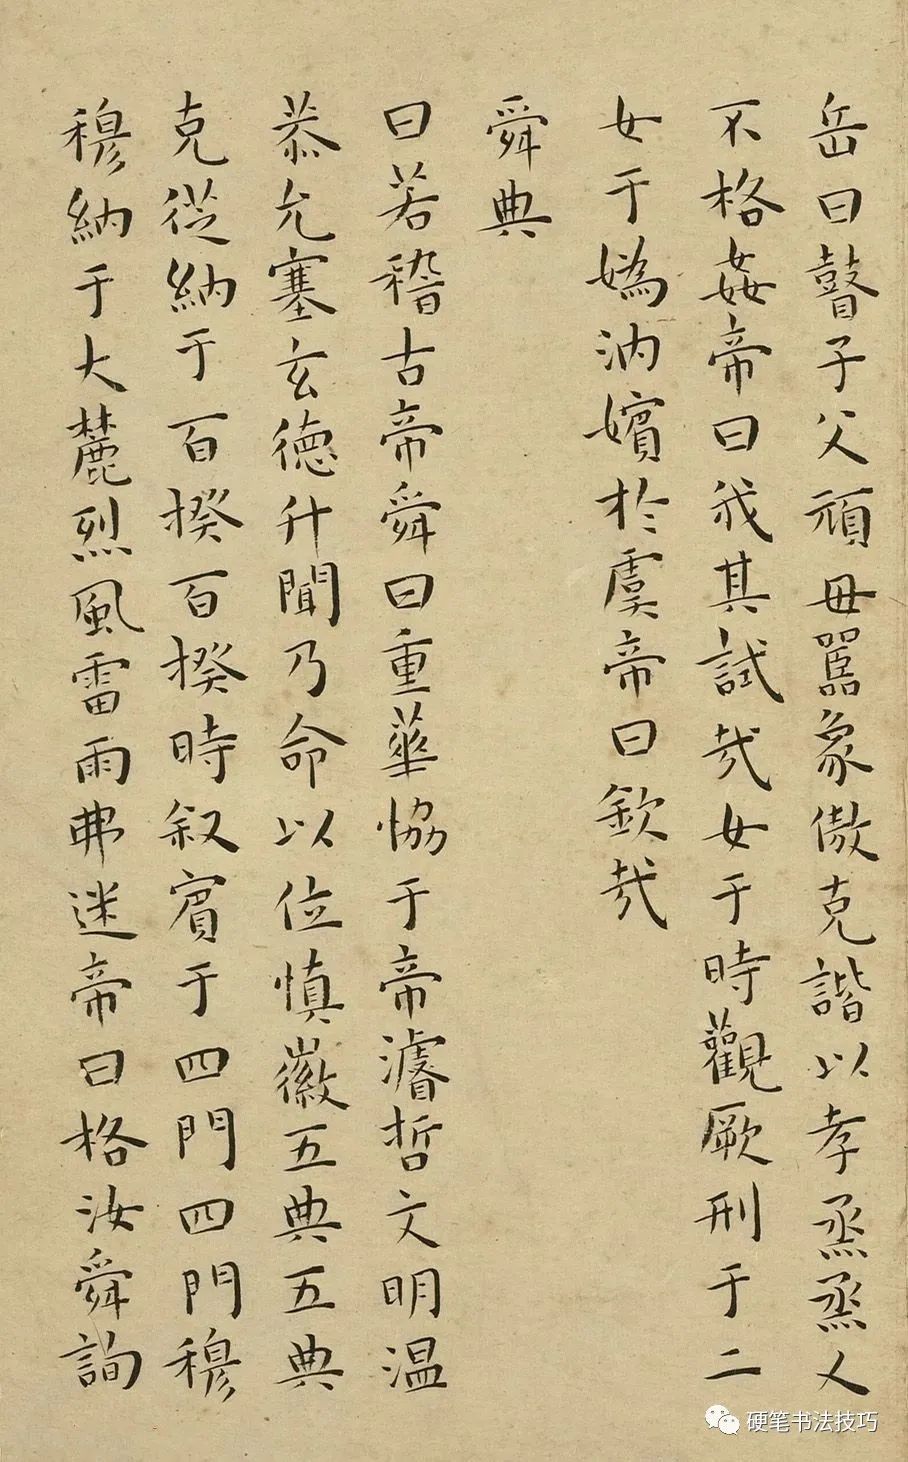 岳曰瞽子父頑毋嚚象傲克諧以孝烝烝乂
不格姦帝曰我其試㢤女于時觀厥刑于二
女于媯汭嬪於虞帝曰欽㢤
舜典
曰若稽古帝舜曰重華恊于帝濬哲文明温
恭允塞玄德升聞乃命以位慎徽五典五典
克從納于百揆百揆時叙賓于四門四門穆
穆納于大麓烈風雷雨弗迷帝曰格汝舜詢
硬笔书法技巧